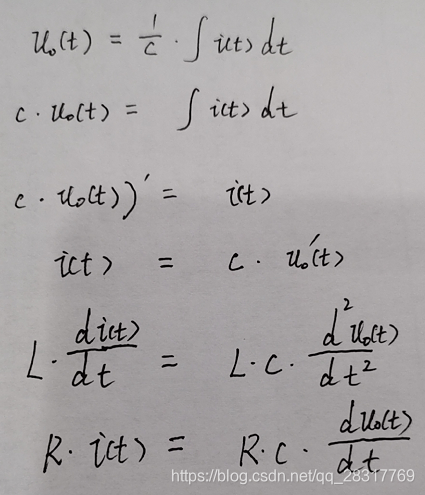 u₀(t) = 1/c · ∫ i(t) dt
c · u₀(t) = ∫ i(t) dt
c · u₀(t))′ = i(t)
i(t) = c · u₀′(t)
L · di(t)/dt = L · c · d²u₀(t)/dt²
R · i(t) = R · c · du₀(t)/dt
https://blog.csdn.net/qq_28317769